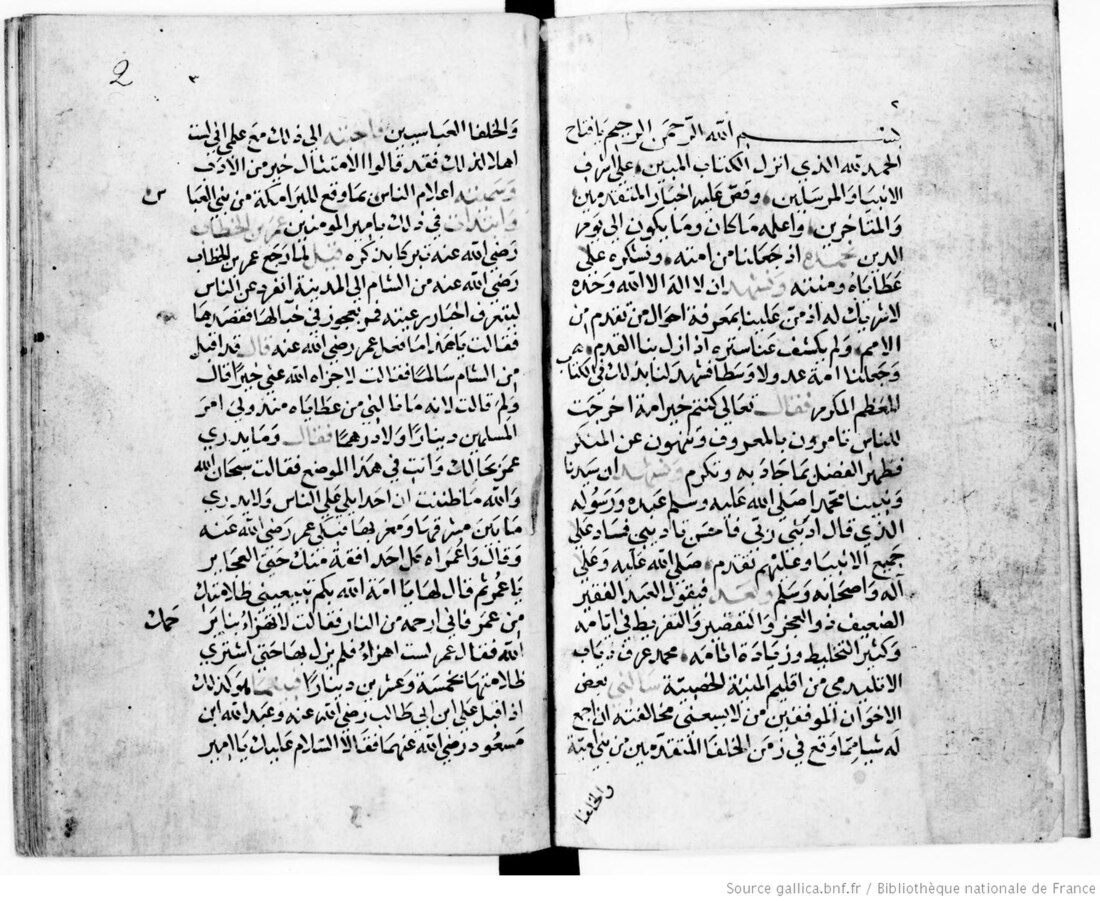 ٢
بسم الله الرحمن الرحيم يا فتاح
الحمد لله الذي انزل الكتاب المبين على اشرف
الانبيا والمرسلين وقص عليه اخبار المتقدمين
والمتاخرين واعلمه ما كان وما يكون الى يوم
الدين نحمده اذ جعلنا من امته ونشكره على
عطاياه ومننه ونشهد ان لا اله الا الله وحده
لا شريك له اذ من علينا بمعرفة احوال من تقدم من
الامم ولم يكشف عنا ستره اذ ازل بنا القدم
وجعلنا امة عدولا وسطا فشهد لنا بذلك في الكتاب
المعظم المكرم فقال تعالى كنتم خير امة اخرجت
للناس تامرون بالمعروف وتنهون عن المنكر
فظهر الفضل بما جاد به وتكرم ونشهد ان سيدنا
ونبينا محمدا صلى الله عليه وسلم عبده ورسوله
الذي قال ادبني ربي فاحسن تاديبي فساد على
جميع الانبيا وعليهم تقدم صلى الله عليه وعلى
آله واصحابه وسلم وبعد فيقول العبد الفقير
الضعيف ذو العجز والتقصير والتفريط في ايامه
وكثير التخليط وزيادة اثامه محمد المعروف دياب
الاتليدي من اقليم المنية الخصيبية سالني بعض
الاخوان الموفقين من لا يسعني مخالفته ان اجمع
له شيا مما وقع في زمن الخلفا المتقدمين من بني امية
والخلفا
2
والخلفا العباسيين فاجبته الى ذلك مع علمي اني لست
اهلا لذلك فقد قالوا الامتثال خير من الادب
وسميته اعلام الناس بما وقع للبرامكة من بني العبا
س
وابتدات في ذلك بامير المومنين عمر بن الخطاب
رضي الله عنه تبركا بذكره قيل لما رجع عمر بن الخطاب
رضي الله عنه من الشام الى المدينة انفرد عن الناس
ليتعرف اخبار رعيته فمر بعجوز في خبا لها فقصدها
فقالت يا هذا ما فعل عمر رضي الله عنه قال قد اقبل
من الشام سالما فقالت لا جزاه الله عني خيرا قال
ولم قالت لانه ما نالني من عطاياه منذ ولي امر
المسلمين دينارا ولا درهما فقال وما يدري
عمر بحالك وانت في هذا الموضع فقالت سبحان الله
والله ما ظننت ان احدا يلي على الناس ولا يدري
ما بين مشرقها ومغربها فبكى عمر رضي الله عنه
وقال واعمراه كل احد افقه منك حتى العجايز
يا عمر ثم قال لها يا امة الله بكم تبيعيني ظلامتك
من عمر فاني ارحمه من النار فقالت لا تهزا بنا ير
حمك
الله فقال عمر لست اهزاء فلم يزل بها حتى اشترى
ظلامتها بخمسة وعشرين دينارا فبينما هو كذلك
اذ اقبل علي ابن ابي طالب رضي الله عنه وعبد الله ابن
مسعود رضي الله عنهما فقالا السلام عليك يا امير
Source gallica.bnf.fr / Bibliothèque nationale de France